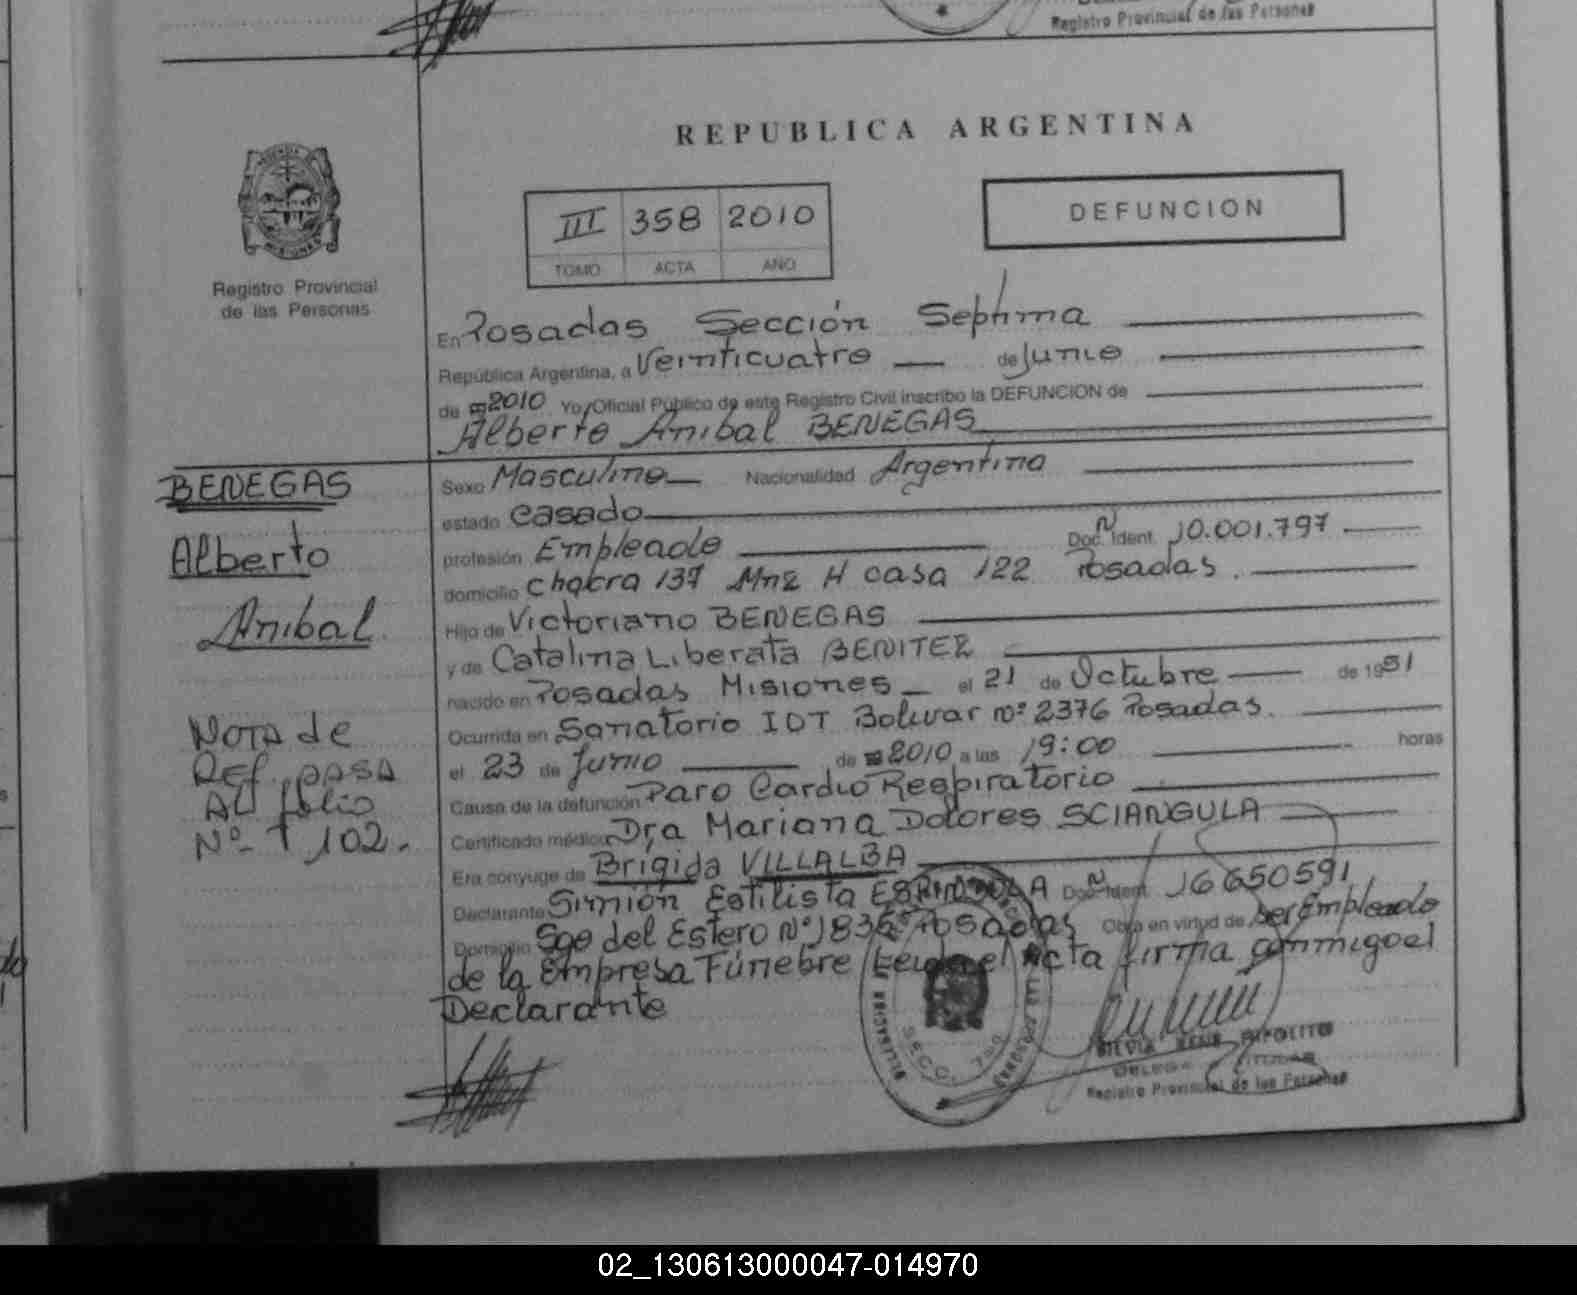 Registro Provincial de las Personas
REPUBLICA ARGENTINA
III 358 2010
TOMO ACTA AÑO
DEFUNCION
Registro Provincial
de las Personas
En Posadas Sección Septima
República Argentina, a Veinticuatro de Junio
de 2010 Yo, Oficial Público de este Registro Civil inscribo la DEFUNCION de
Alberto Anibal BENEGAS
BENEGAS
Alberto
Anibal
Sexo Masculino Nacionalidad Argentina
estado Casado
profesión Empleado Doc. Ident. Nº 10.001.797
domicilio chacra 137 Mnz H casa 122 Posadas.
Hijo de Victoriano BENEGAS
y de Catalina Liberata BENITEZ
nacido en Posadas Misiones el 21 de Octubre de 1951
Ocurrida en Sanatorio IOT Bolivar nº 2376 Posadas.
el 23 de Junio de 2010 a las 19:00 horas
Causa de la defunción Paro Cardio Respiratorio
Certificado médico Dra Mariana Dolores SCIANGULA
Era conyuge de Brigida VILLALBA
Declarante Simión Estilista Doc. Ident. 16650591
Domicilio Sgo del Estero Nº 1836 Posadas Obra en virtud de ser Empleado
de la Empresa Fúnebre Leida el Acta firma conmigo el
Declarante
Nota de
Ref. pasa
AL folio
Nº 102.
SILVIA HIPOLITO
TITULAR
Registro Provincial de las Personas
02_130613000047-014970